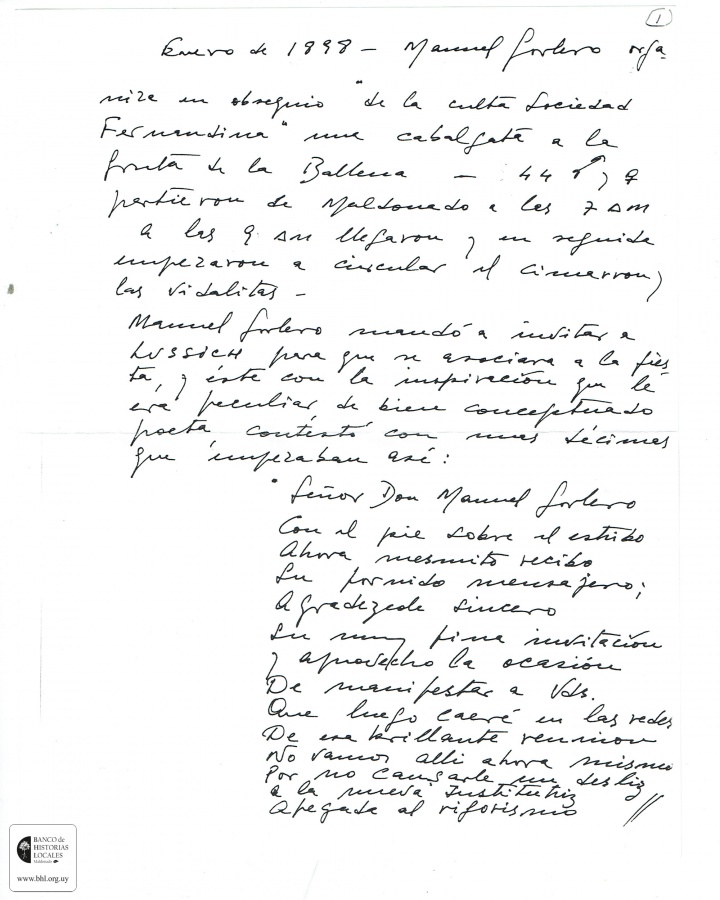 1
Enero de 1898 - Manuel Gorlero orga-
niza en obsequio "de la culta Sociedad
Fernandina" una cabalgata a la
gruta de la Ballena - 44 ♂ y ♀
partieron de Maldonado a las 7 AM
A las 9 AM llegaron y en seguida
empezaron a circular el cimarron y
las vidalitas -
Manuel Gorlero mandó a invitar a
LUSSICH para que se asociara a la fies
ta, y éste con la inspiración que le
era peculiar, de bien conceptuado
poeta, contestó con unas décimas
que empezaban así:
"Señor Don Manuel Gorlero
Con el pie sobre el estribo
Ahora mesmito recibo
Su fornido mensajero;
Agradezcole sincero
Su muy fina invitación
y aprovecho la ocasión
De manifestar a Vds.
Que luego caeré en las redes
De esa brillante reunion
No vamos alli ahora mismo
Por no causarle un desliz
a la nueva Institutriz
Apegada al rigorismo //
BANCO de
HISTORIAS
LOCALES
Maldonado
www.bhl.org.uy